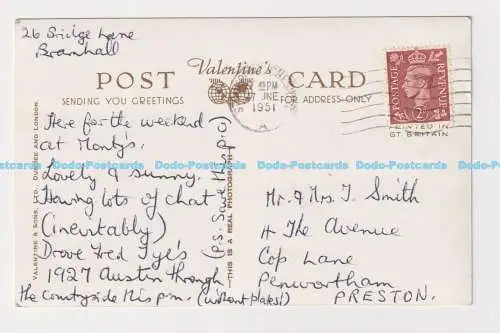 26 Bridge Lane
Bramhall
POST Valentine's CARD
SENDING YOU GREETINGS
FOR ADDRESS ONLY
PM
7 JNE
1951
A
POSTAGE
REVENUE
PRINTED IN
GT. BRITAIN
VALENTINE & SONS, LTD. DUNDEE AND LONDON.
THIS IS A REAL PHOTOGRAPH
Here for the weekend
at Monty's.
Lovely & sunny.
Having lots of chat
(inevitably)
Drove Fred Tye's
1927 Austin through
the countryside this pm. (without plates!)
(p.s. Save this p.c)
Mr. & Mrs. J. Smith
4 The Avenue
Cop Lane
Penwortham
PRESTON.
Dodo-Postcards Dodo-Postcards Dodo-Postcards Dodo-Postcards Dodo-Postcards